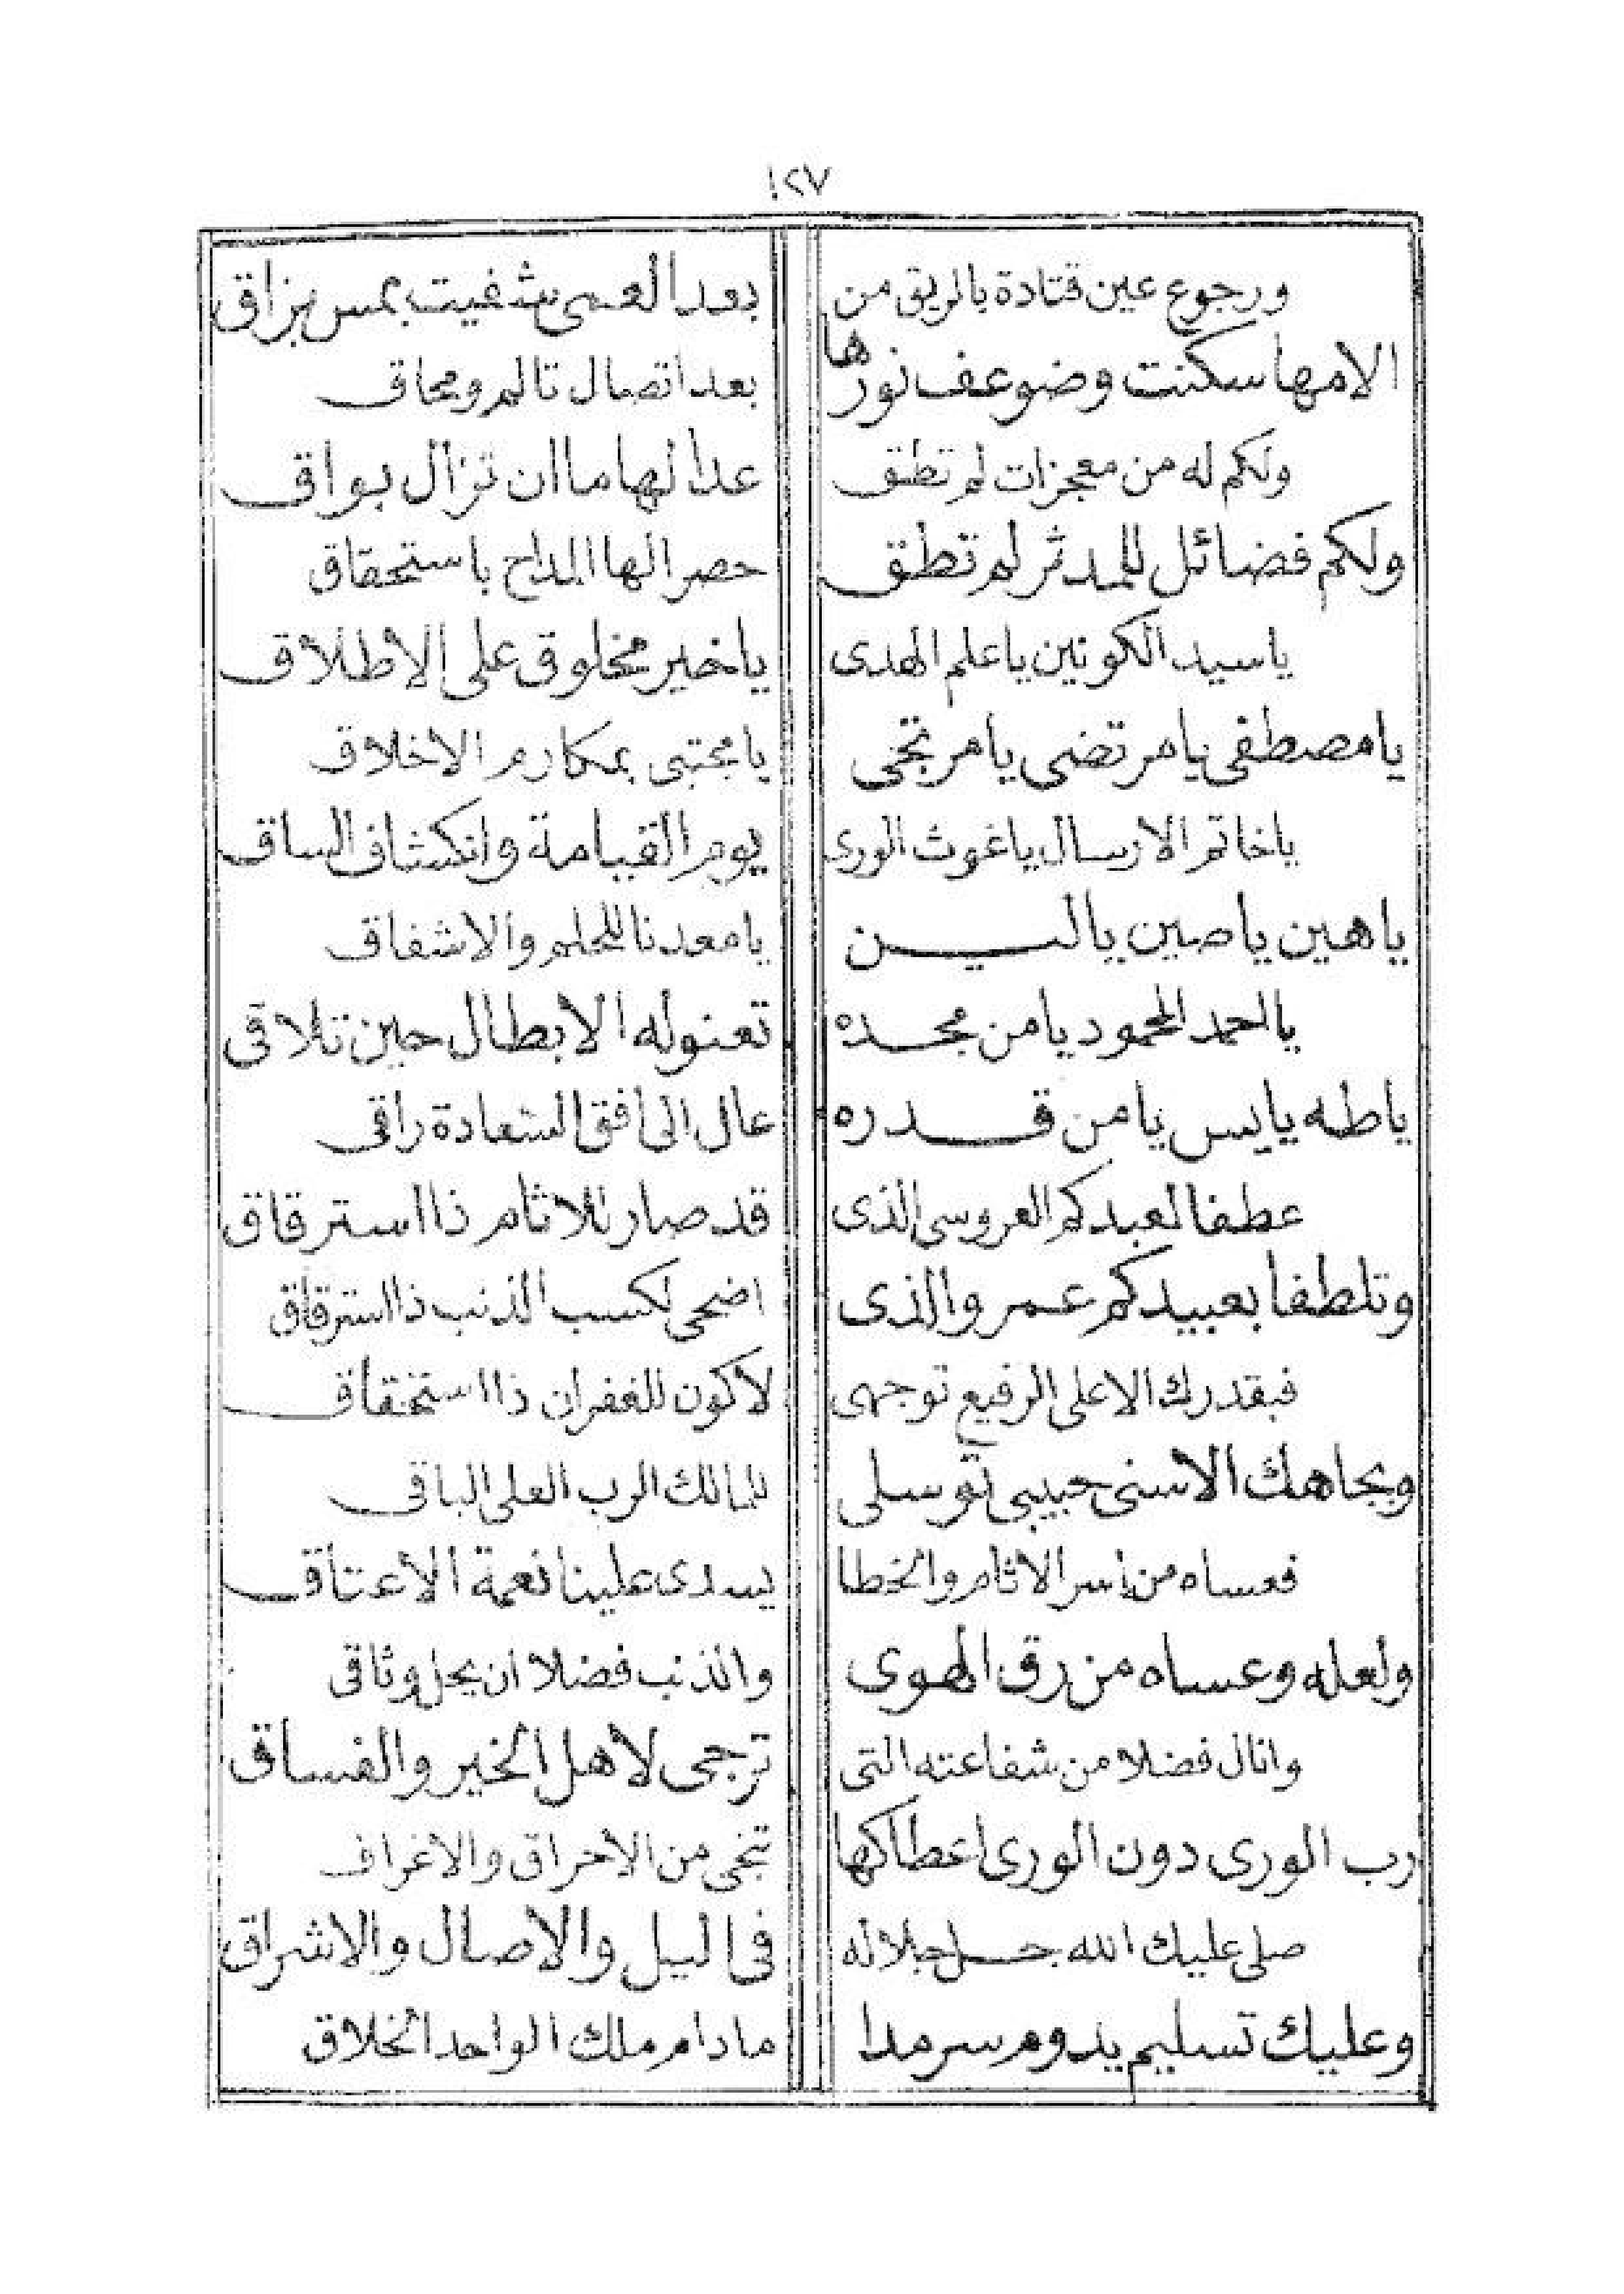 ١٢٧
ورجوع عين قتادة بالريق من بعد العمى شفيت بمس بزاق
الامها سكنت وضوعف نورها بعد اتصال تالم ومحاق
ولكم له من معجزات لم تطق عدا لها ما ان تزال بواق
ولكم فضائل للمدثر لم تطق حصرا لها المداح باستحقاق
يا سيد الكونين يا علم الهدى يا خير مخلوق على الاطلاق
يا مصطفى يا مرتضى يا مرتجى يا مجتبى بمكارم الاخلاق
يا خاتم الارسال يا غوث الورى يوم القيامة وانكشاف الساق
يا هين يا صين يا لين يا معدنا للحلم والاشفاق
يا احمد المحمود يا من مجده تعنو له الابطال حين تلاقى
يا طه يا يس يا من قدره عال الى افق السعادة راقى
عطفا لعبدكم العروسى الذى قد صار للاثام ذا استرقاق
وتلطفا بعبيدكم عمر والذى اضحى لكسب الذنب ذا استرقاق
فبقدرك الاعلى الرفيع توجهى لاكون للغفران ذا استحقاق
وبجاهك الاسنى حبيبى توسلى للمالك الرب العلى الباقى
فعساه من اسر الاثام والخطا يسدى علينا نعمة الاعتاق
ولعله وعساه من رق الهوى والذنب فضلا ان يحل وثاقى
وانال فضلا من شفاعته التى ترجى لاهل الخير والفساق
رب الورى دون الورى اعطاكها تنجى من الاحراق والاغراق
صلى عليك الله جل جلاله فى اليل والاصال والاشراق
وعليك تسليم يدوم سرمدا ما دام ملك الواحد الخلاق